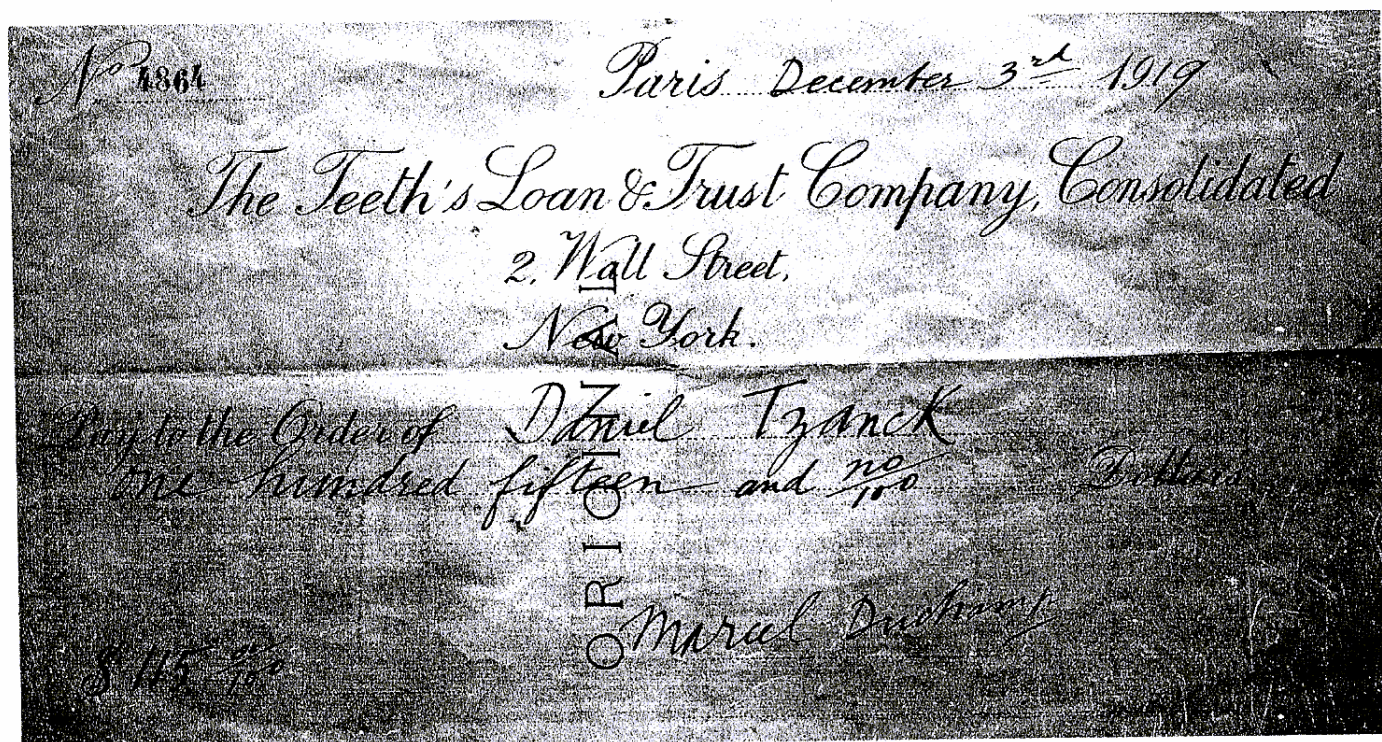 No 4864
Paris December 3rd 1919
The Teeth's Loan & Trust Company, Consolidated
2, Wall Street,
New York.
Pay to the Order of Daniel Tzanck
one hundred fifteen and no/100 Dollars
ORIGINAL
Marcel Duchamp
$ 115 no/100